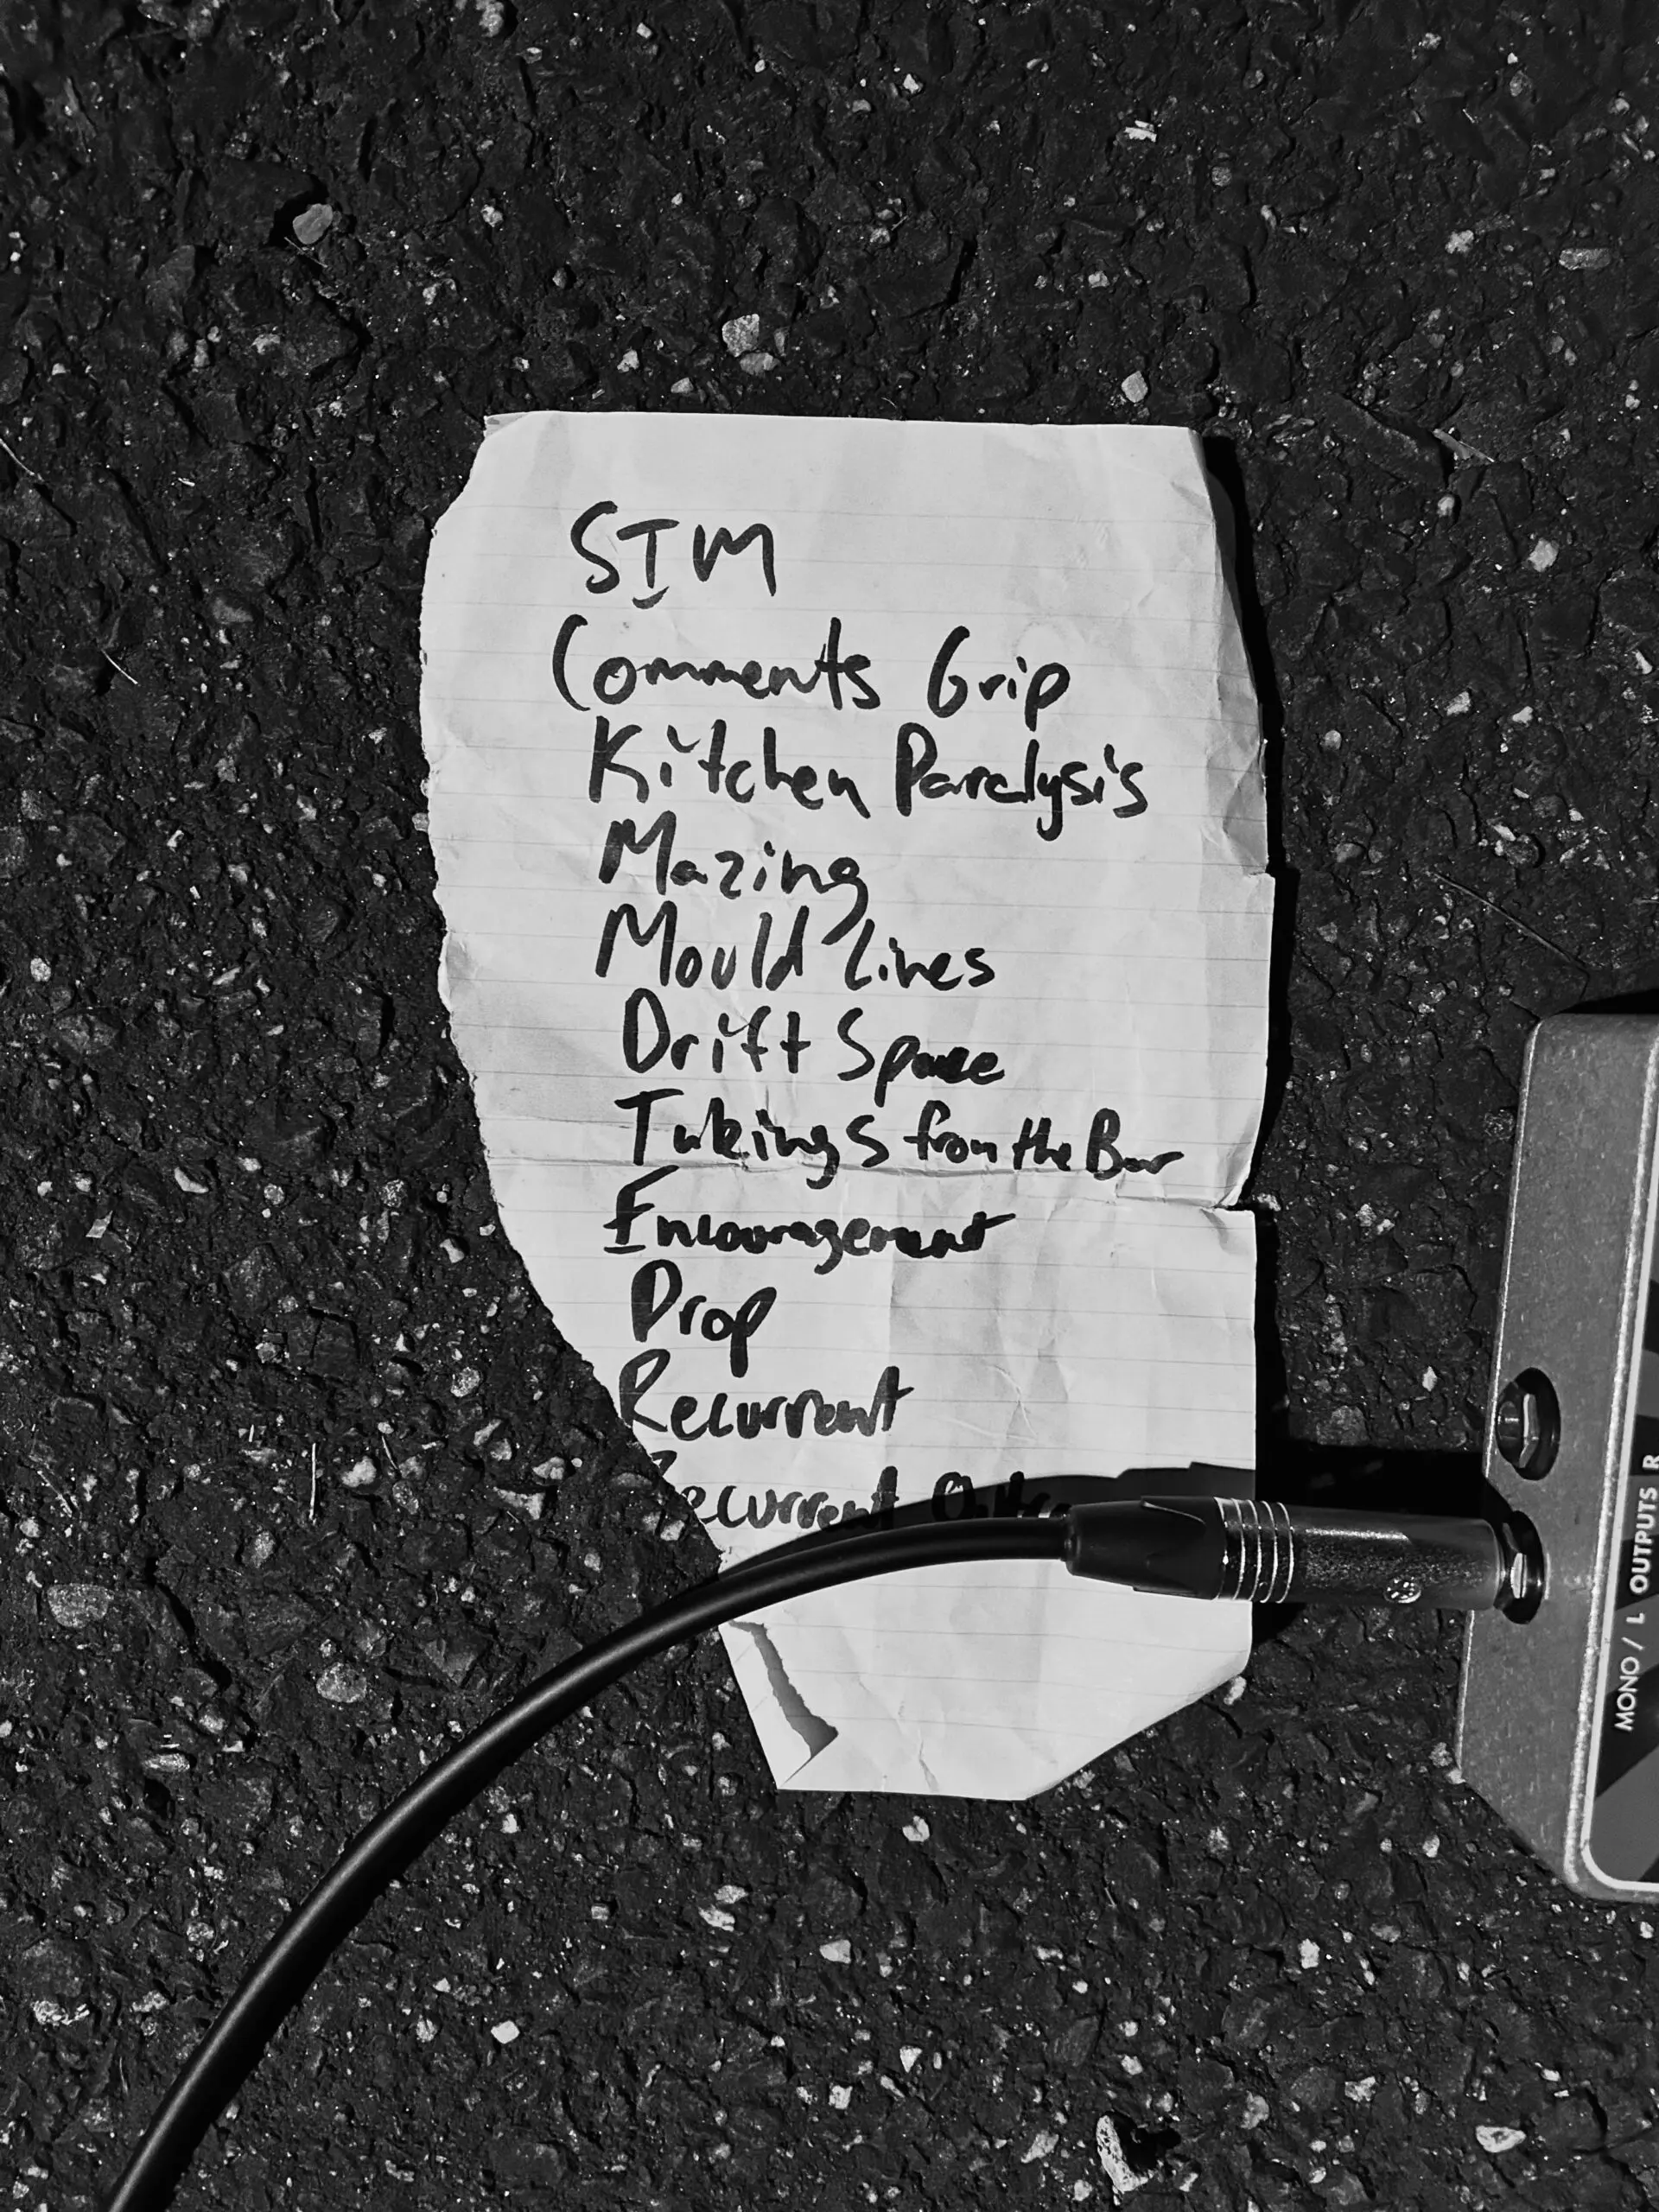 SIM
Comments Grip
Kitchen Paralysis
Mazing
Mould Lines
Drift Space
Takings from the Bar
Encouragement
Drop
Recurrent
Recurrent
MONO / L OUTPUTS R